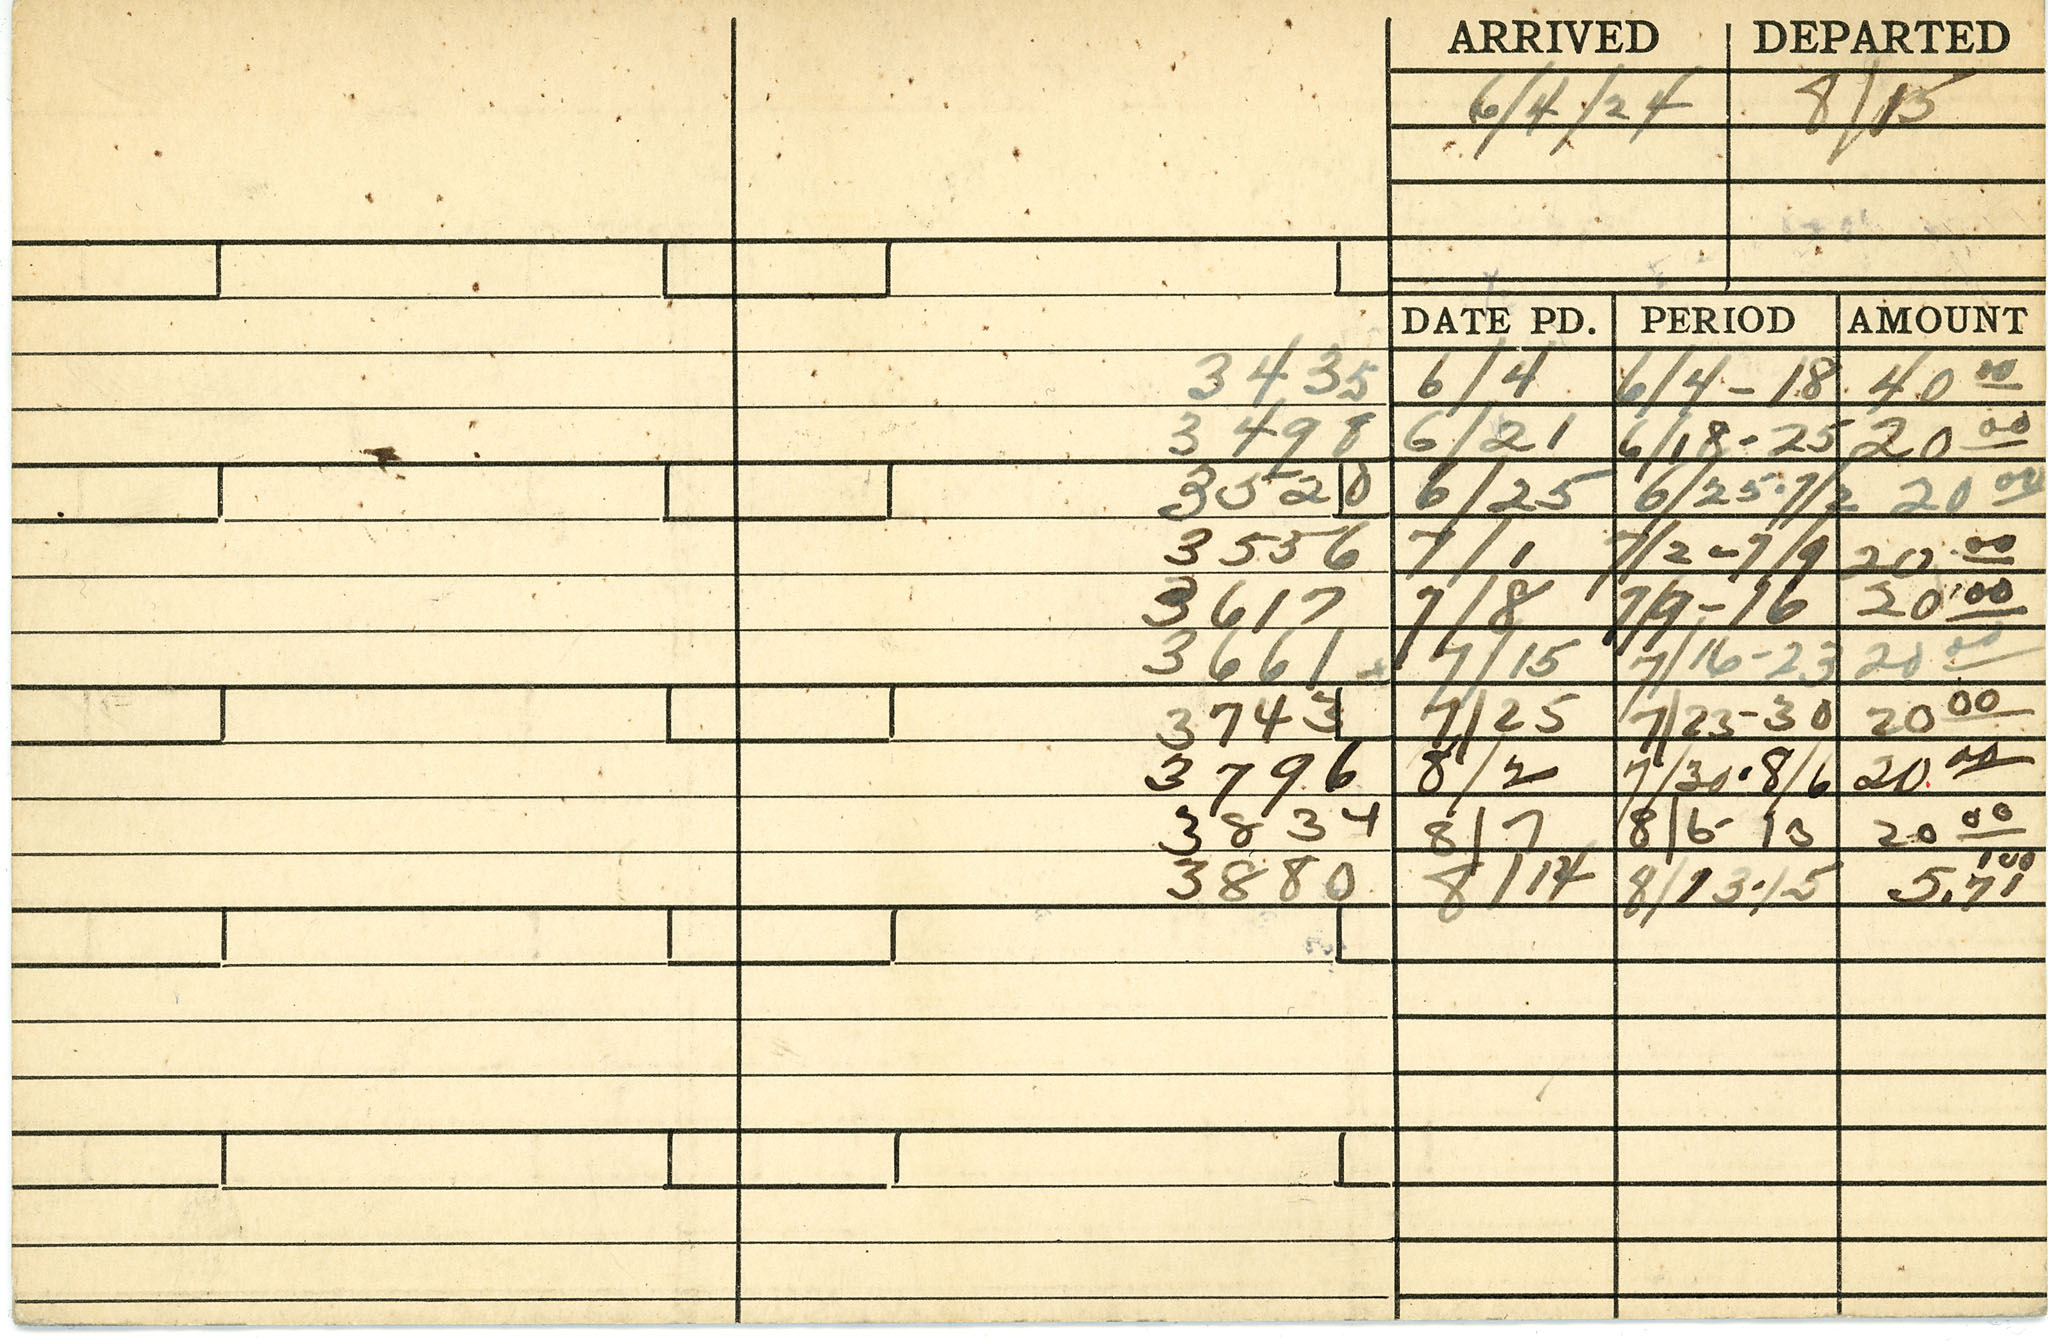 ARRIVED DEPARTED
6/4/24 8/15
DATE PD. PERIOD AMOUNT
3435 6/4 6/4-18 40 00
3498 6/21 6/18-25 20 00
3520 6/25 6/25-7/2 20 00
3556 7/1 7/2-7/9 20 00
3617 7/8 7/9-16 20 00
3661 7/15 7/16-23 20 00
3743 7/25 7/23-30 20 00
3796 8/2 7/30-8/6 20 00
3834 8/7 8/6-13 20 00
3880 8/14 8/13-15 5.71